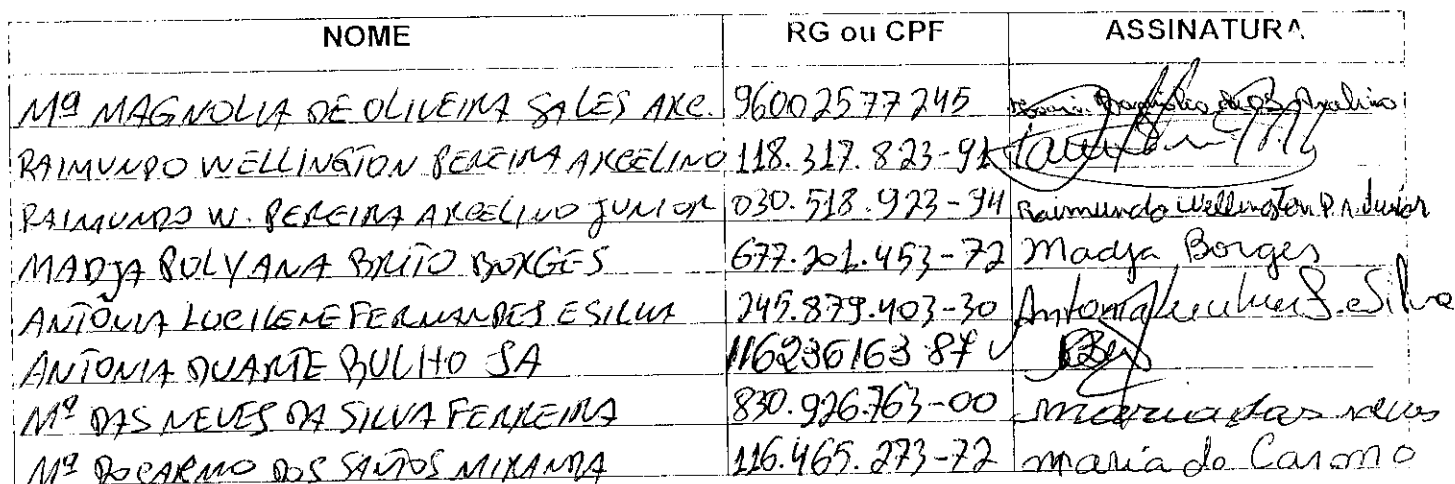 NOME RG ou CPF ASSINATURA
Mª MAGNOLIA DE OLIVEIRA SALES ARC. 96002577245
RAIMUNDO WELLINGTON PEREIRA ARCELINO 118.317.823-91
RAIMUNDO W. PEREIRA ARCELINO JUNIOR 030.518.923-94 Raimundo Wellington P. A. Junior
MADJA POLYANA BRITO BORGES 677.201.453-72 Madja Borges
ANTÔNIA LUCILENE FERNANDES E SILVA 245.879.403-30 Antonia e Silva
ANTONIA DUARTE BULHO SA 116236163 87
Mª DAS NEVES DA SILVA FERREIRA 830.926.763-00 maria das neves
Mª DO CARMO DOS SANTOS MIRANDA 116.465.273-72 maria do Carmo